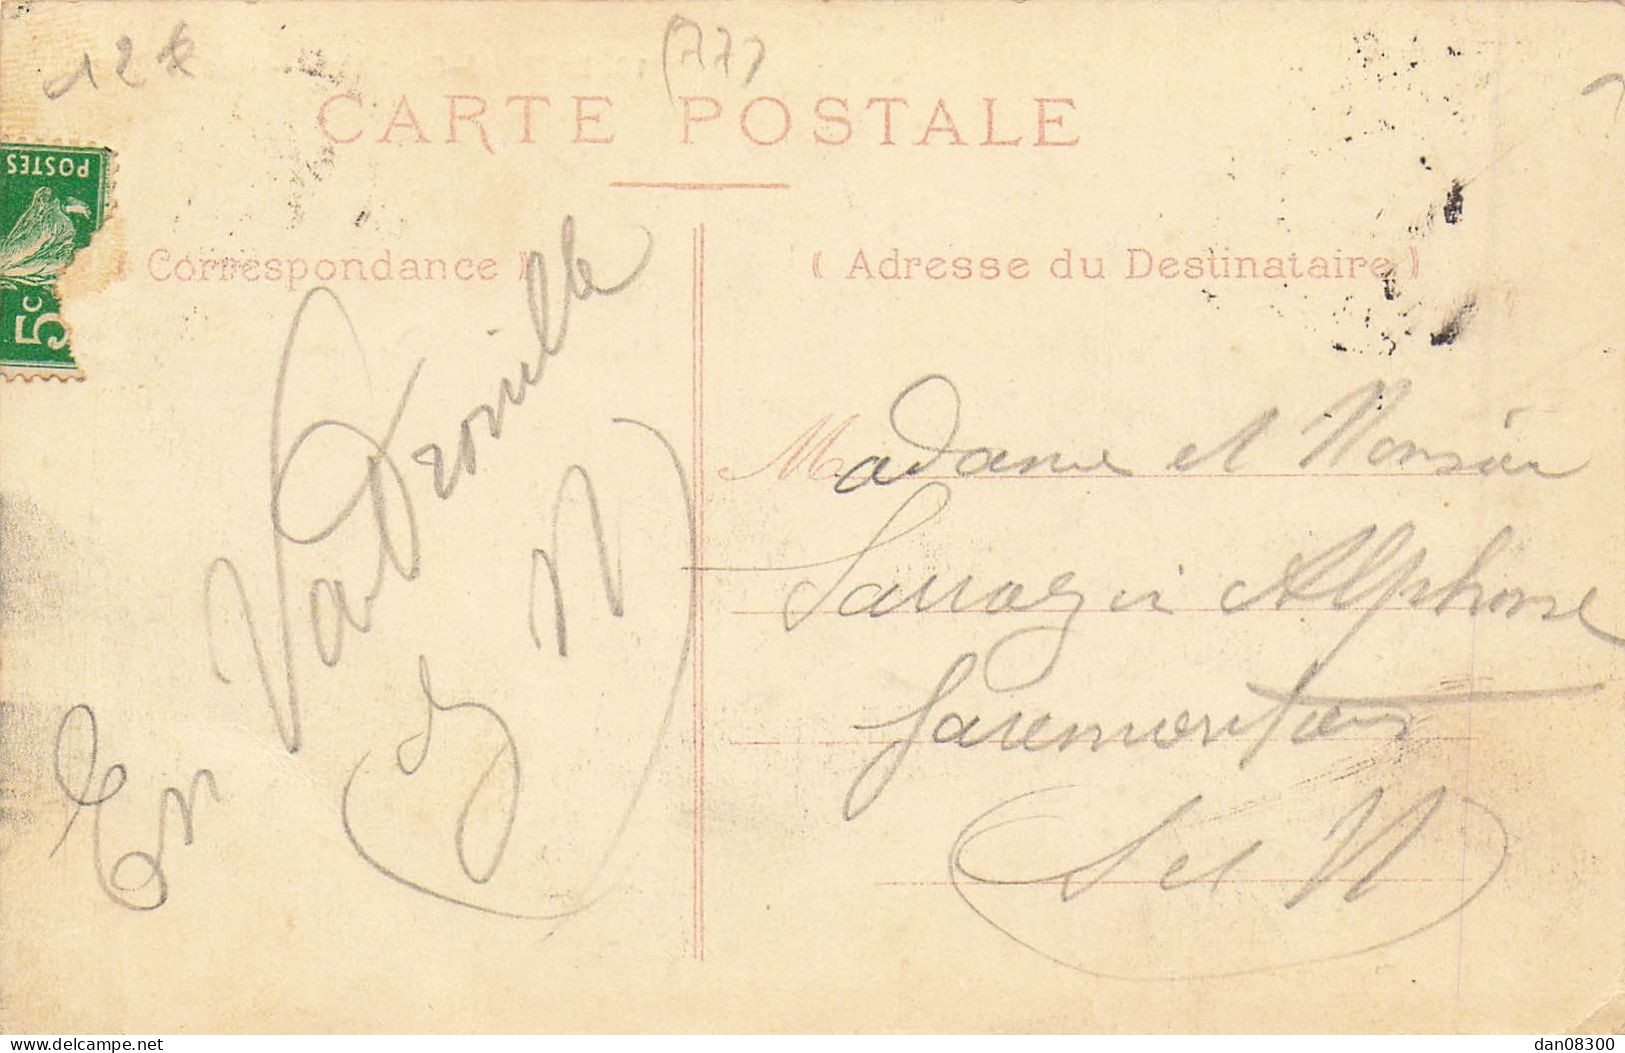 12 €
(77)
CARTE POSTALE
POSTES
5c
( Correspondance )
( Adresse du Destinataire )
En
Madame et Monsieur
Sarrazin Alphonse
Faremoutiers
S et M
www.delcampe.net
dan08300